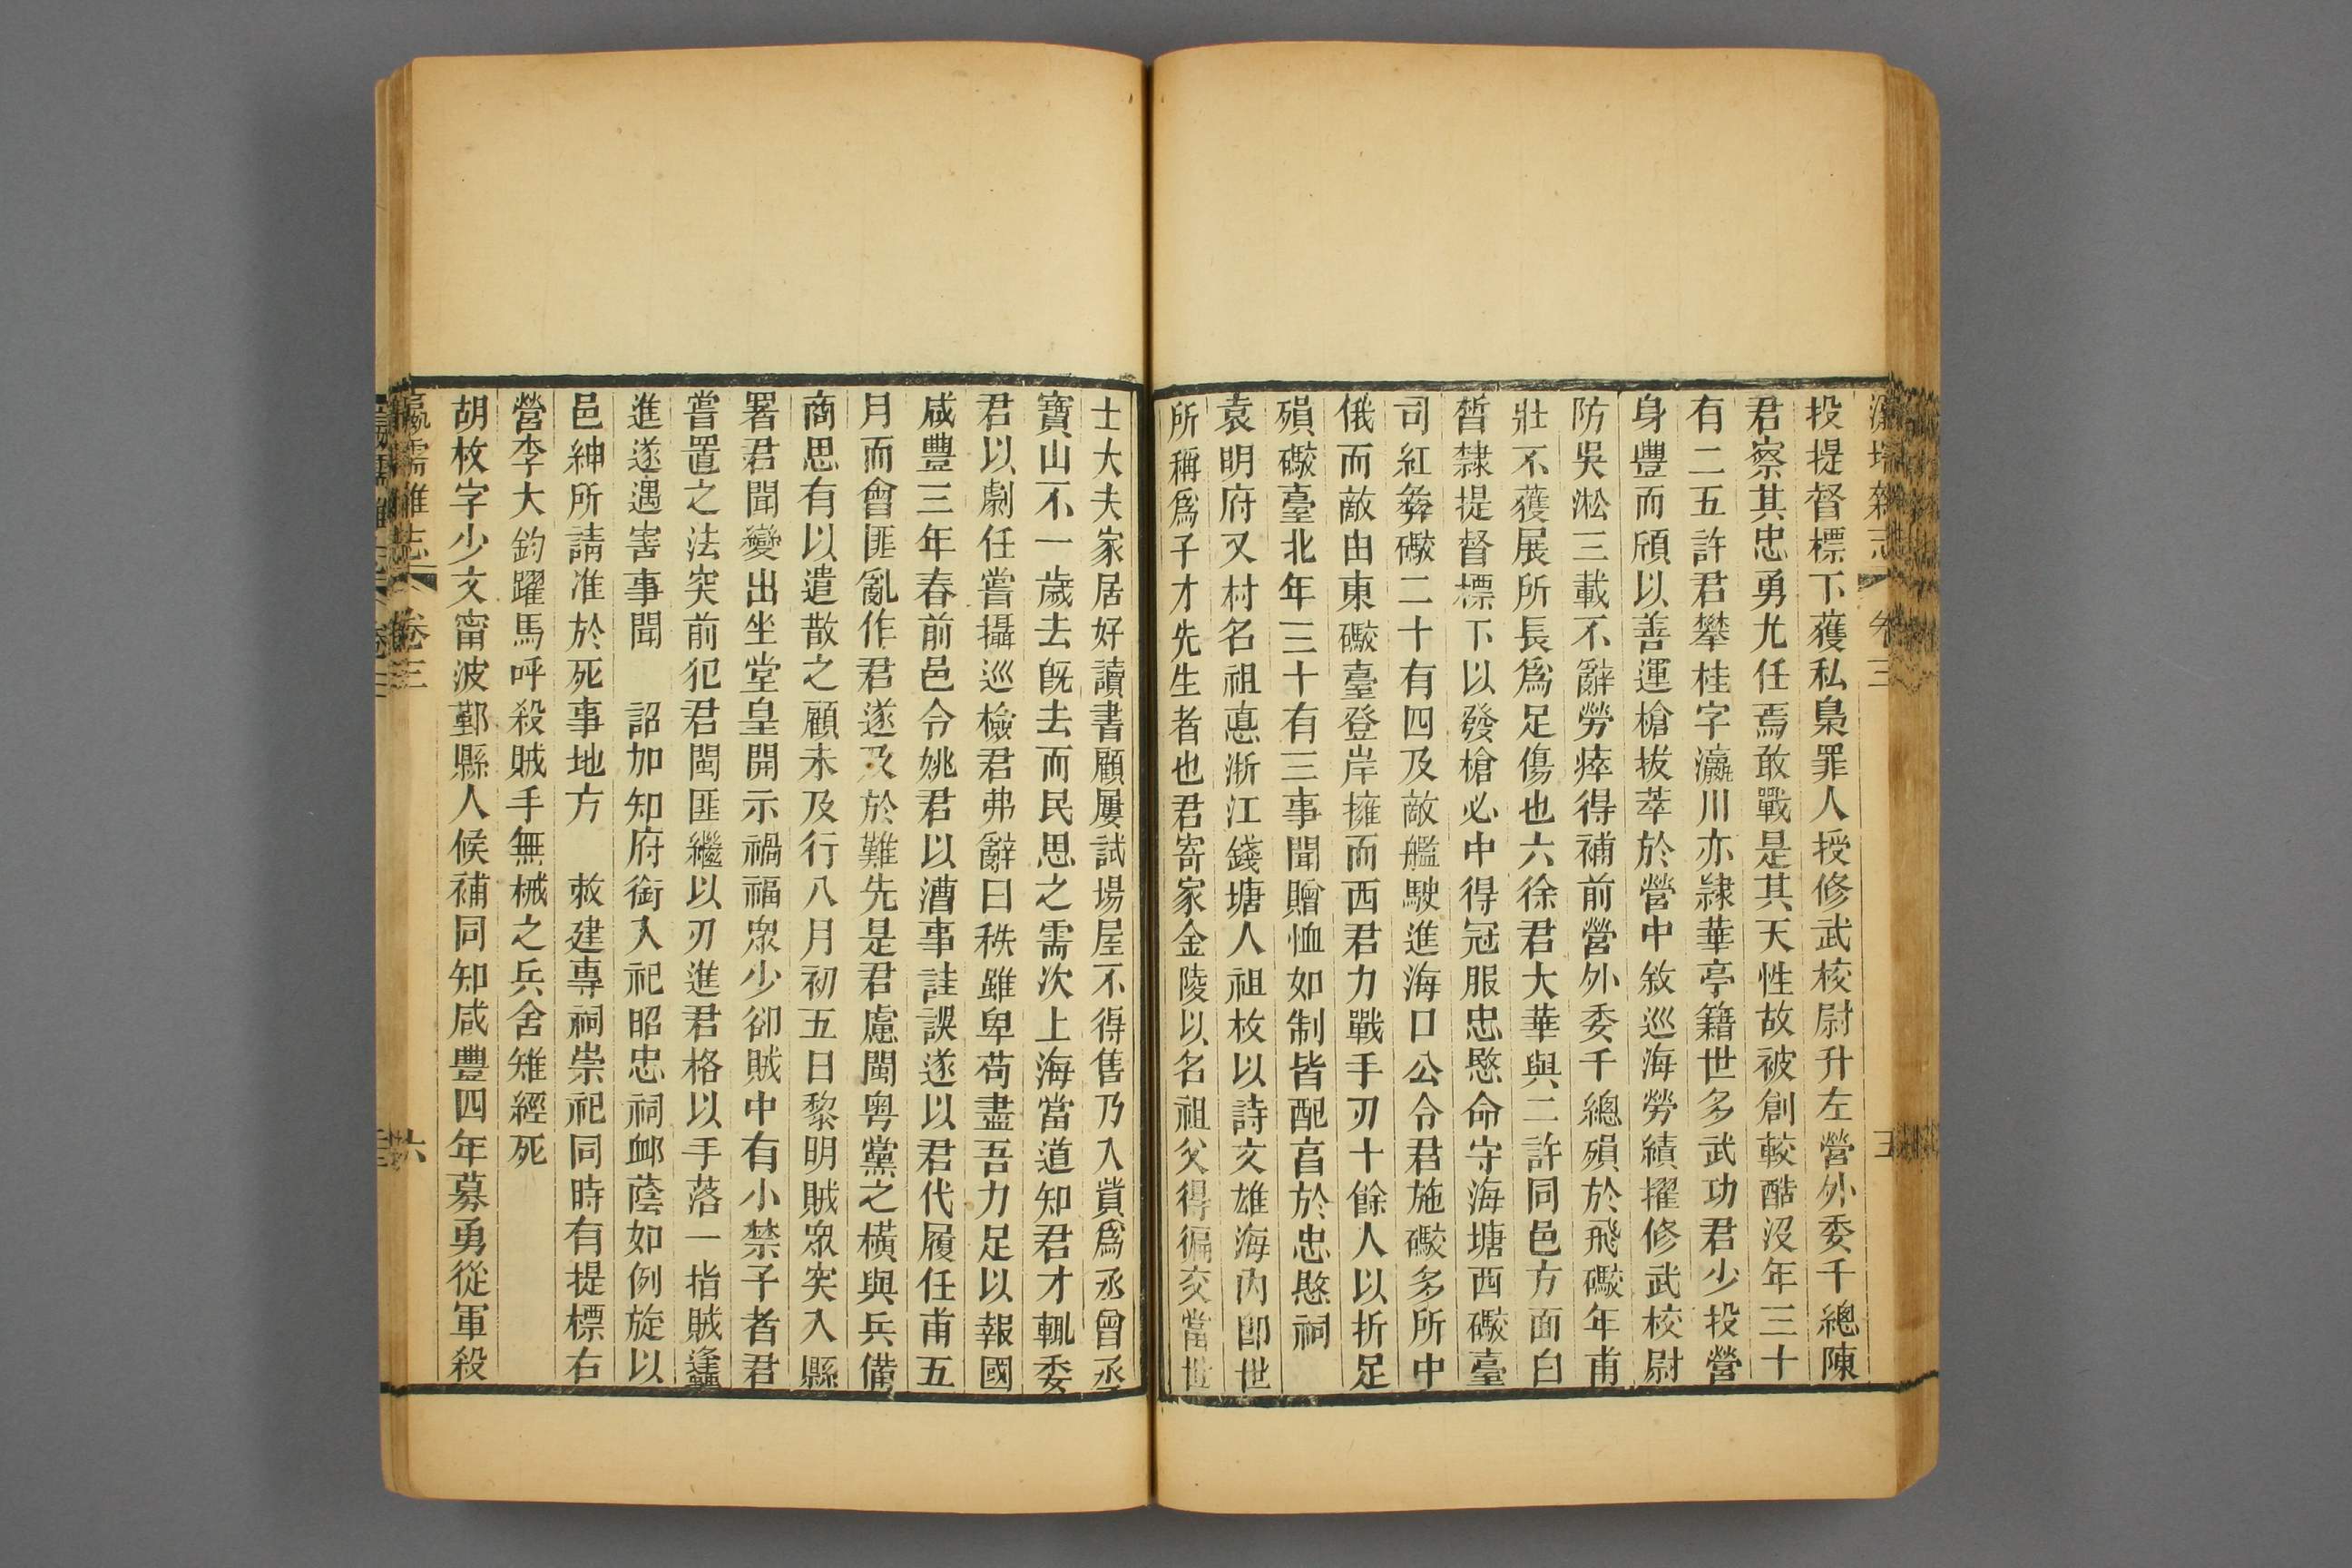 瀛壖雜志 卷三 五
投提督標下獲私梟罪人授修武校尉升左營外委千總陳
君察其忠勇尤任焉敢戰是其天性故被創較酷沒年三十
有二五許君攀桂字瀛川亦隸華亭籍世多武功君少投營
身豐而頎以善運槍拔萃於營中敘巡海勞績擢修武校尉
防吳淞三載不辭勞瘁得補前營外委千總殞於飛礮年甫
壯不獲展所長爲足傷也六徐君大華與二許同邑方面白
晳隸提督標下以發槍必中得冠服忠愍命守海塘西礮臺
司紅彜礮二十有四及敵艦駛進海口公令君施礮多所中
俄而敵由東礮臺登岸擁而西君力戰手刃十餘人以折足
殞礮臺北年三十有三事聞贈恤如制皆配亯於忠愍祠
袁明府又村名祖惪浙江錢塘人祖枚以詩文雄海內卽世
所稱爲子才先生者也君寄家金陵以名祖父得徧交當世
士大夫家居好讀書顧屢試場屋不得售乃入貲爲丞曾丞
寶山不一歲去旣去而民思之需次上海當道知君才輒委
君以劇任嘗攝巡檢君弗辭曰秩雖卑苟盡吾力足以報國
咸豐三年春前邑令姚君以漕事詿誤遂以君代履任甫五
月而會匪亂作君遂及於難先是君慮閩粵黨之橫與兵備
商思有以遣散之顧未及行八月初五日黎明賊眾突入縣
署君聞變出坐堂皇開示禍福眾少卻賊中有小禁子者君
嘗置之法突前犯君閩匪繼以刃進君格以手落一指賊逢蠭
進遂遇害事聞　詔加知府銜入祀昭忠祠卹蔭如例旋以
邑紳所請准於死事地方　敕建專祠崇祀同時有提標右
營李大鈞躍馬呼殺賊手無械之兵舍雉經死
胡枚字少文甯波鄞縣人候補同知咸豐四年募勇從軍殺
瀛壖雜志 卷三 六